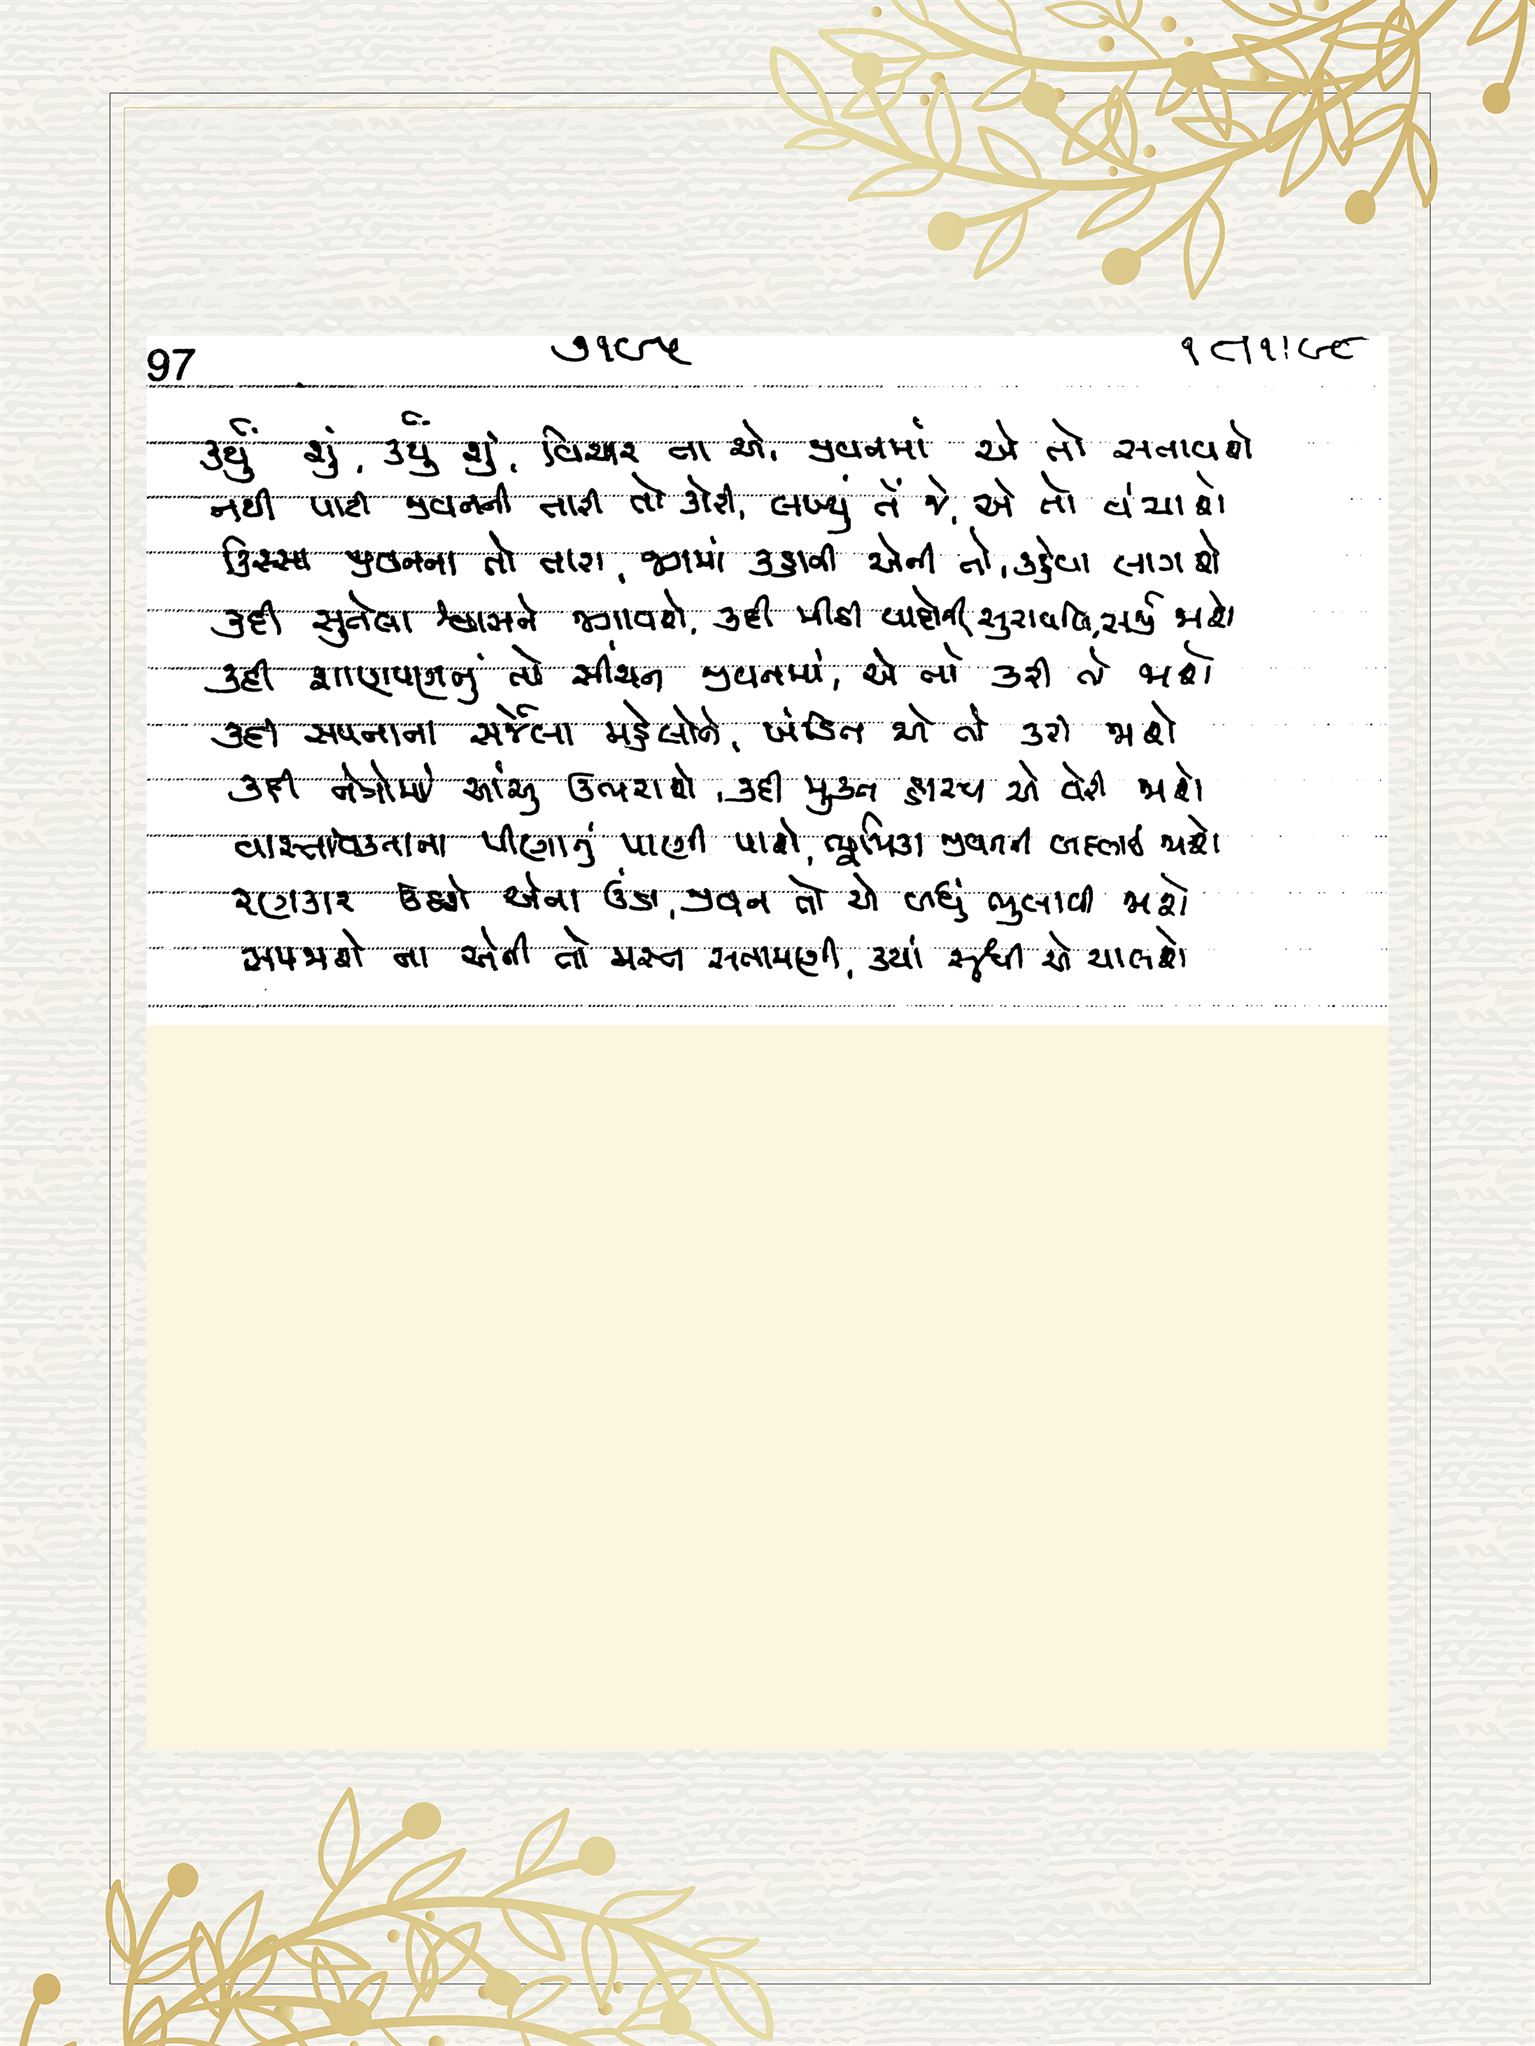 97
૭૧૯૫
કર્યું શું, કર્યું શું, વિચાર ના એ, જીવનમાં એ તો સતાવશે
નથી પાટી જીવનની તારી તો કોરી, લખ્યું તેં જે, એ તો વંચાશે
કિસ્સા જીવનના તો તારા, જગમાં કહાની એની તો, કહેવા લાગશે
કદી સુતેલા શ્વાસને જગાવશે, કદી મીઠી યાદોની સુરાવલિ, સર્જી જાશે
કદી શાણપણનું તો સીંચન જીવનમાં, એ તો કરી તો જાશે
કદી સપનાના સર્જેલા મહેલોને, ખંડિત એ તો કરી જાશે
કદી નેત્રોમાં આંસુ ઉભરાશે, કદી મુક્ત હાસ્ય એ વેરી જાશે
વાસ્તવિકતાના પીણાનું પાણી પાશે, ભૂમિકા જીવનની બદલાઈ જાશે
રણકાર ઉઠશે એના ઉંડા, જીવન તો એ બધું ભુલાવી જાશે
સમજાશે ના એની તો મસ્ત સતામણી, ક્યાં સુધી એ ચાલશે